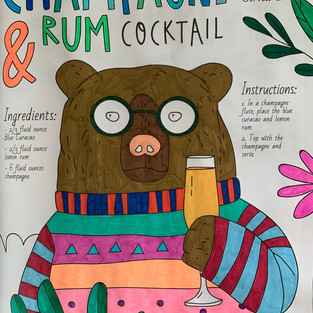 CHAMPAGNE
& RUM COCKTAIL
Ingredients:
- 2/3 fluid ounce
Blue Curacao
- 2/3 fluid ounce
lemon rum
- 6 fluid ounces
champagne
Instructions:
1. In a champagne
flute, place the blue
curacao and lemon
rum.
2. Top with the
champagne and
serve.